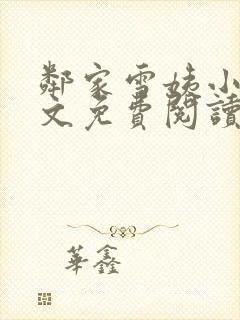 鄰家雪姨小
文免費閱讀
華鑫